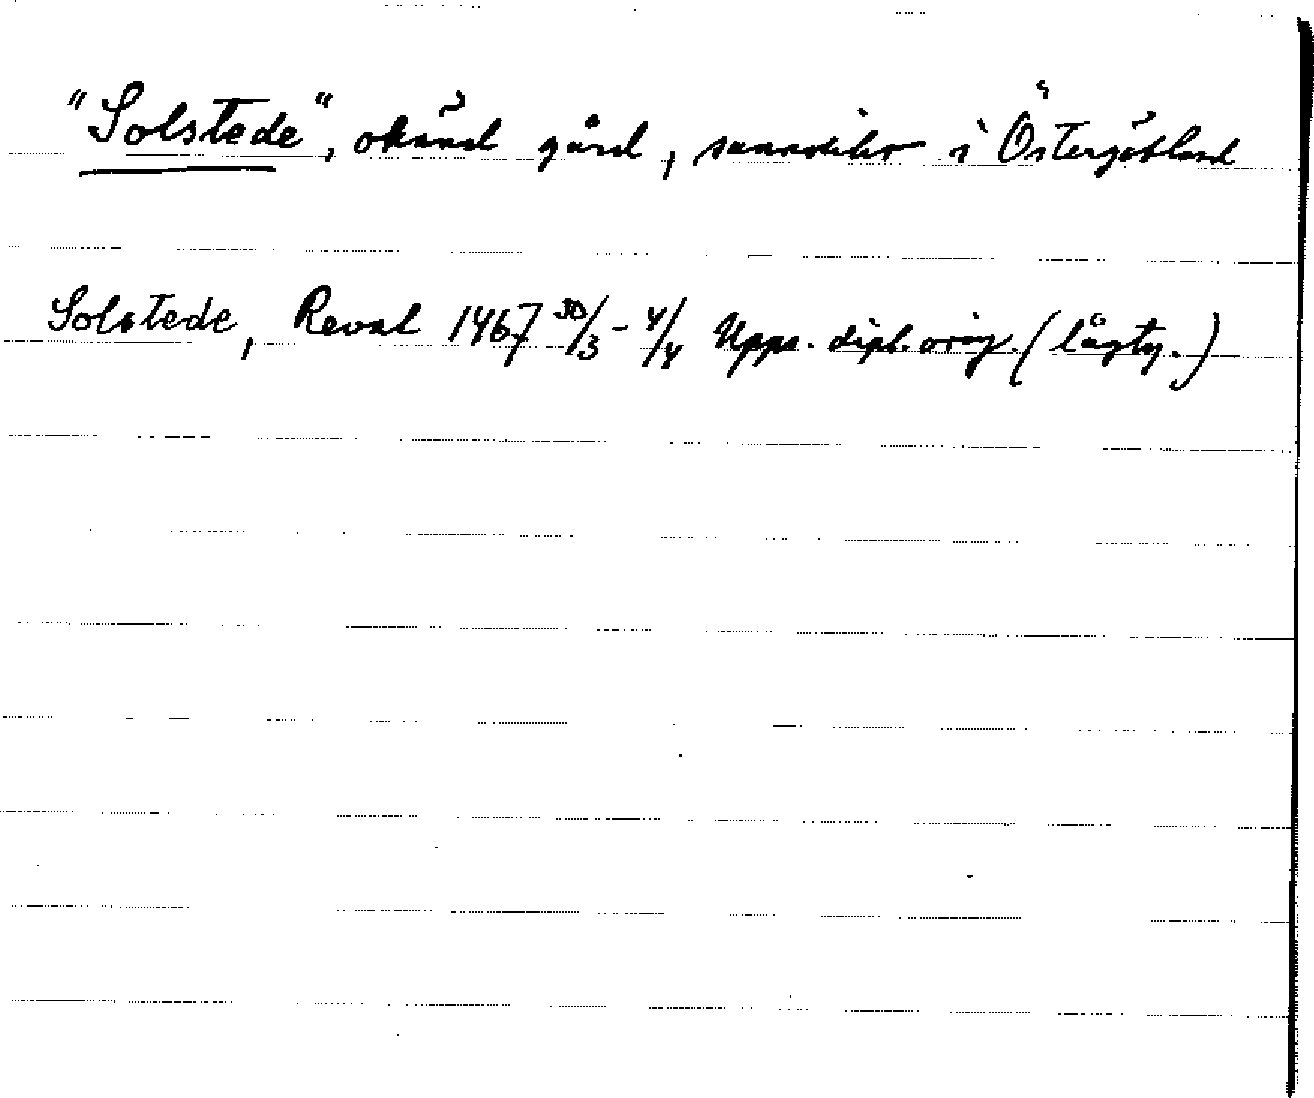 "Solstede", okänd gård, sannolikt i Östergötland
Solstede, Reval 1467 30/3 - 4/4 Upps. dipl. orig. (lågty.)